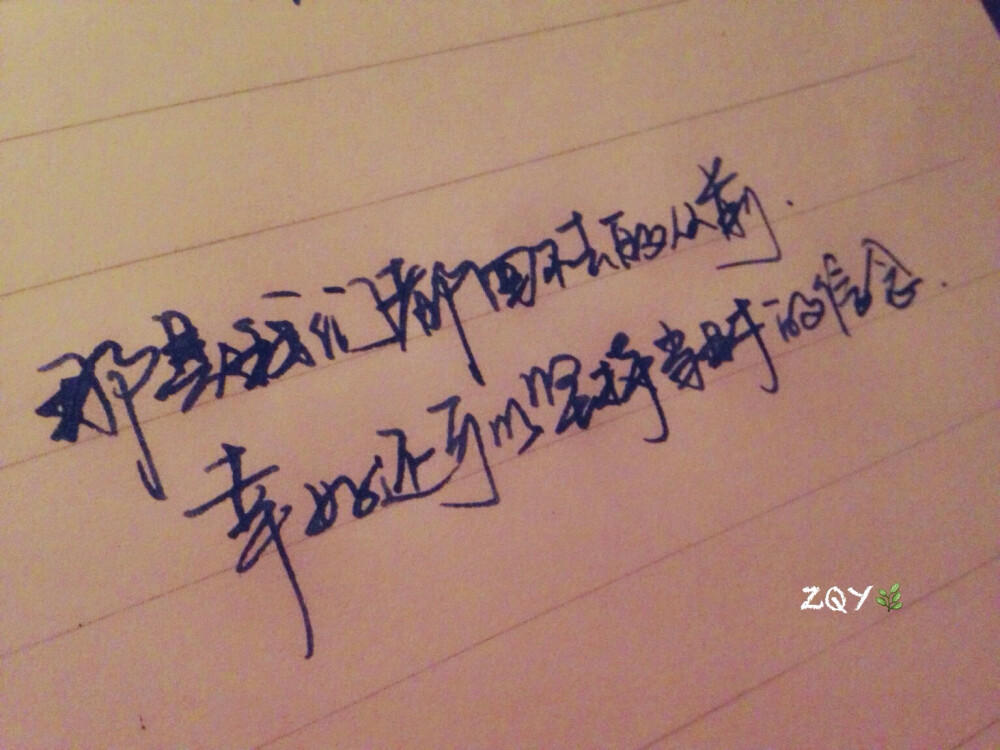 那是我们都回不去的从前.
幸好还可以坚持当时的信念.
ZQY